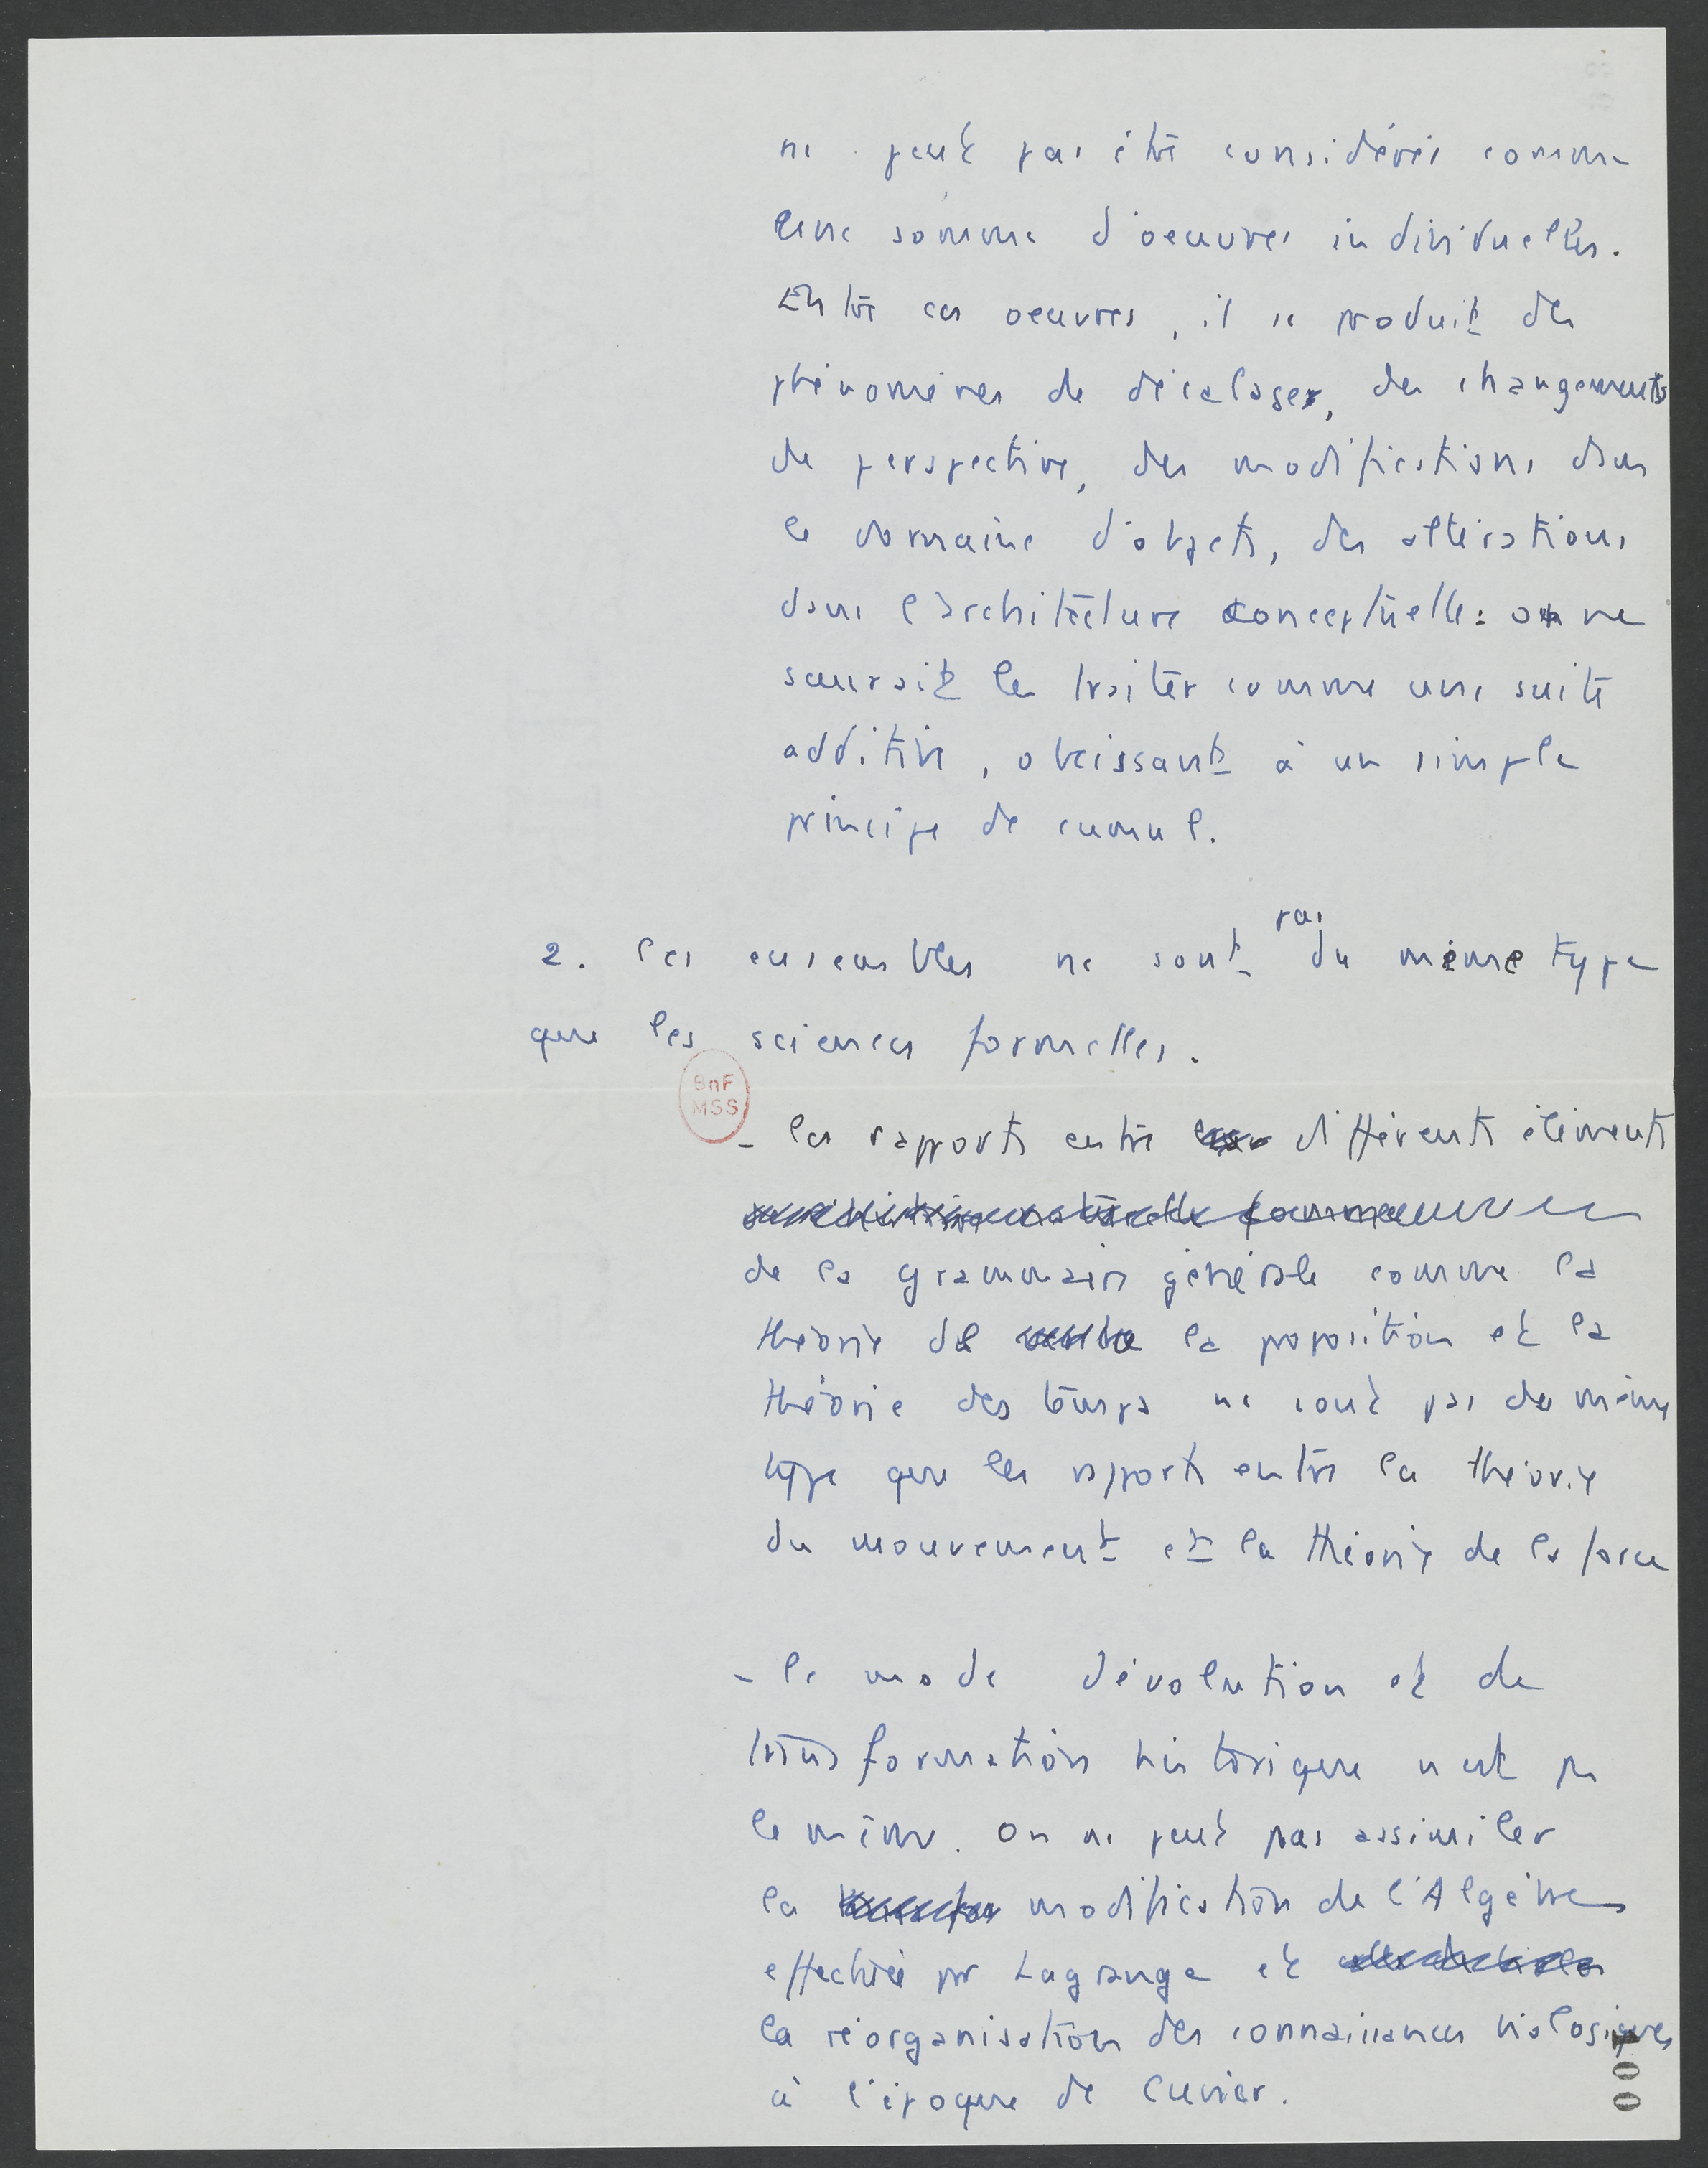 ne peut pas être considérée comme
une somme d'oeuvres individuelles.
Entre ces oeuvres, il se produit des
phénomènes de décalage, des changements
de perspective, des modifications dans
le domaine d'objets, des altérations
dans l'architecture conceptuelle : on ne
saurait les traiter comme une suite
additive, obéissant à un simple
principe de cumul.
2. Ces ensembles ne sont pas du même type
que les sciences formelles.
BnF
MSS
- les rapports entre différents éléments
de la grammaire générale comme la
théorie de la proposition et la
théorie des temps ne sont pas du même
type que les rapports entre la théorie
du mouvement et la théorie de la force
- le mode d'évolution et de
transformation historique n'est pas
le même. On ne peut pas assimiler
la modification de l'Algèbre
effectuée par Lagrange et
la réorganisation des connaissances biologiques
à l'époque de Cuvier.